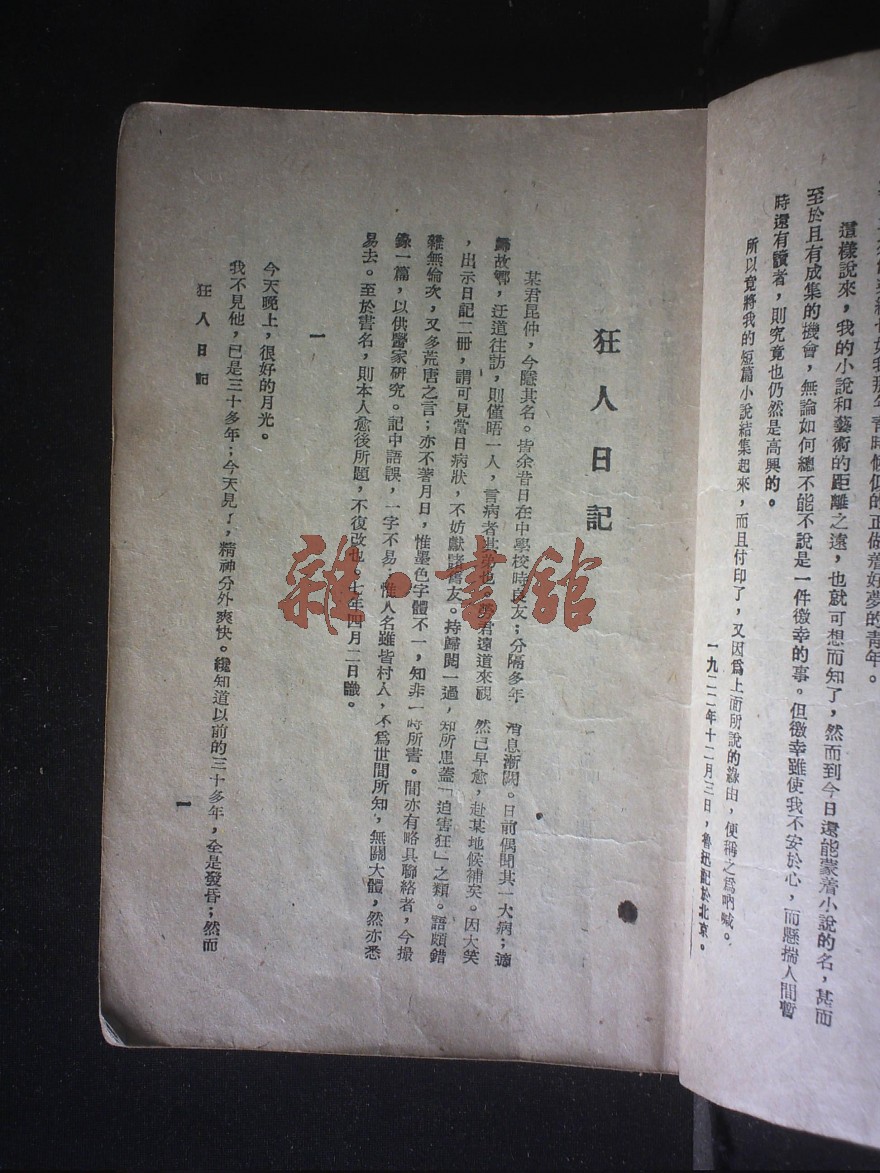 如我那年青時候似的正做着好夢的青年。
這樣說來，我的小說和藝術的距離之遠，也就可想而知了，然而到今日還能蒙着小說的名，甚而
至於且有成集的機會，無論如何總不能不說是一件徼幸的事。但徼幸雖使我不安於心，而懸揣人間暫
時還有讀者，則究竟也仍然是高興的。
所以竟將我的短篇小說結集起來，而且付印了，又因爲上面所說的緣由，便稱之爲吶喊。
一九二二年十二月三日，魯迅記於北京。
狂人日記
某君昆仲，今隱其名。皆余昔日在中學校時良友；分隔多年　消息漸闕。日前偶聞其一大病；適
歸故鄉，迂道往訪，則僅晤一人，言病者其弟也。勞君遠道來視　然已早愈，赴某地候補矣。因大笑
，出示日記二冊，謂可見當日病狀，不妨獻諸舊友。持歸閱一過，知所患蓋「迫害狂」之類。語頗錯
雜無倫次，又多荒唐之言；亦不著月日，惟墨色字體不一，知非一時所書。間亦有略具聯絡者，今撮
錄一篇，以供醫家研究。記中語誤，一字不易；惟人名雖皆村人，不爲世間所知，無關大體，然亦悉
易去。至於書名，則本人愈後所題，不復改也。七年四月二日識。
一
今天晚上，很好的月光。
我不見他，已是三十多年；今天見了，精神分外爽快。纔知道以前的三十多年，全是發昏；然而
狂人日記
一
雜·書館